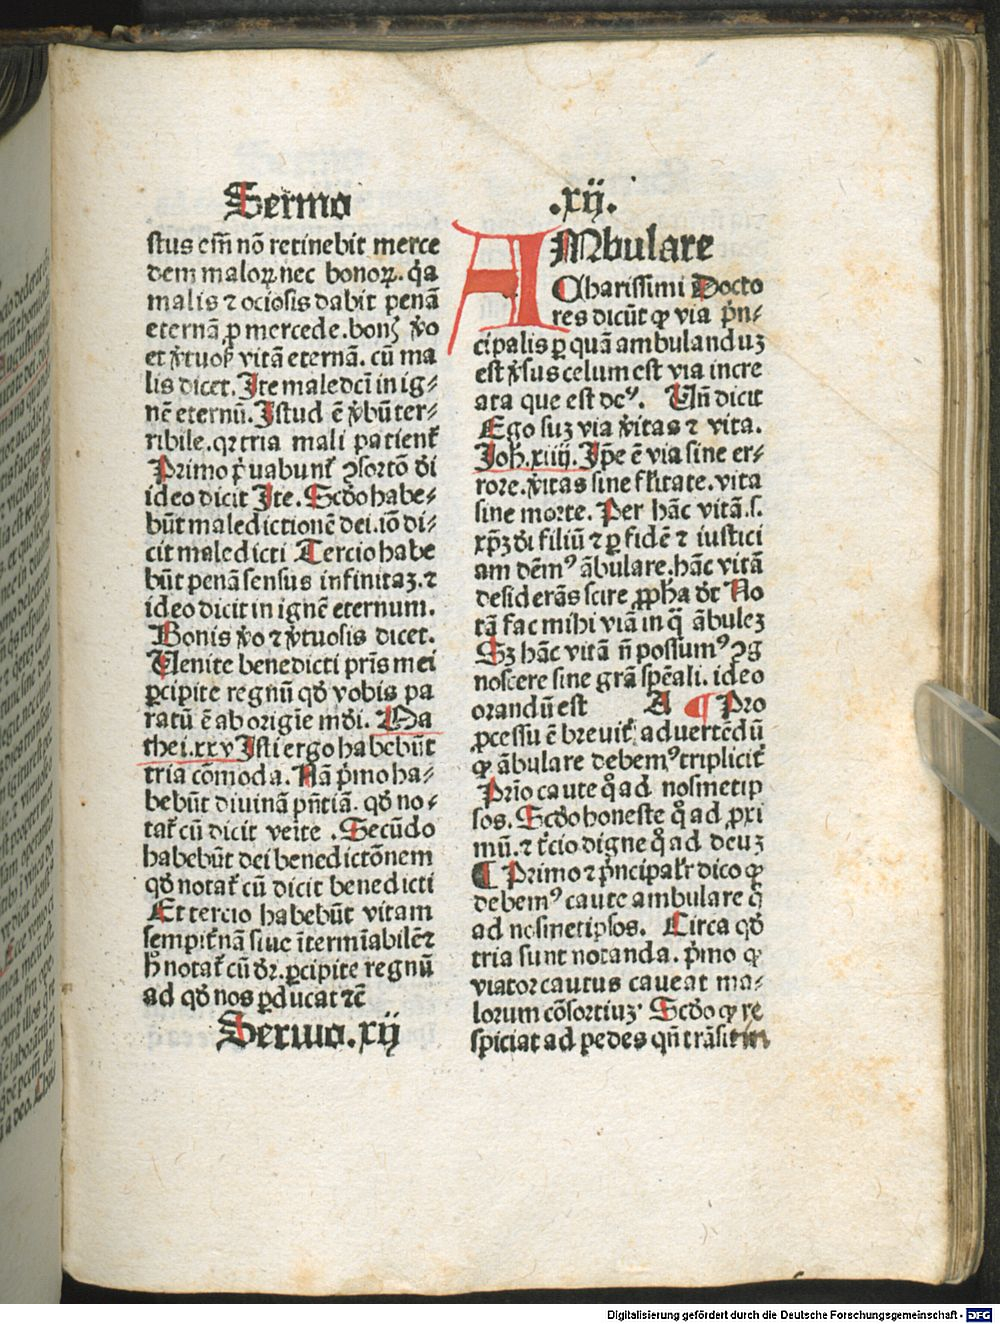 Sermo
.xij.
stus em̄ nō retinebit merce
dem maloꝝ nec bonoꝝ. q̄a
malis ⁊ ociosis dabit penā
eternā ꝑ mercede. bonꝭ v̄o
et v̄tuosꝭ vitā eternā. cū ma
lis dicet. Ite maledcī in ig⸗
nē eternū. Istud ē v̄bū ter⸗
ribile. qꝛ tria mali patient̄
Primo p̄uabunt̄ ꝯsortō di
ideo dicit Ite. Scd̄o habe⸗
būt maledictionē dei. iō di⸗
cit maledicti Tercio habe
būt penā sensus infinitaꝫ. ⁊
ideo dicit in ignē eternum.
Bonis v̄o ⁊ v̄tuosis dicet.
Uenite benedicti prīs mei
ꝑcipite regnū qd̄ vobis pa
ratū ē ab origīe mūdi. Ma
thei. xxv Isti ergo habebūt
tria cōmoda. Nā p̄mo ha⸗
bebūt diuinā pn̄tiā. qd̄ no⸗
tat̄ cū dicit veite . Secūdo
habebūt dei benedictōnem
qd̄ notat̄ cū dicit benedicti
Et tercio habebūt vitam
sempit̄nā siue īterminabilē ⁊
h̄ notat̄ cū dr̄. ꝑcipite regnū
ad qd̄ nos ꝑducat ⁊c̄
Sermo. xij
AMbulare
Charissimi Docto
res dicūt ꝙ via p̄n⸗
cipalis ꝑ quā ambulanduꝫ
est v̄sus celum est via incre
ata que est dēꝰ. Un̄ dicit
Ego suꝫ via v̄itas ⁊ vita.
Joh̄. xiiij. Ip̄e ē via sine er⸗
rore. v̄itas sine fl̄itate. vita
sine morte. Per hāc vitā. s.
xp̄ꝫ di filiū ⁊ ꝑ fidē ⁊ iustici
am dēmꝰ ābulare. hāc vitā
desiderās scire ꝓph̄a dt̄ No
tā fac mihi viā in q̄ ābuleꝫ
Sꝫ hāc vitā n̄ possumꝰ ꝯg
noscere sine grā spēali. ideo
orandū est A ¶ Pro
ꝓcessu ē breuit̄ aduertēdū
ꝙ ābulare debemꝰ triplicit̄
Prīo caute q̊ ad nosmetip
sos. Scd̄o honeste q̊ ad ꝓxi
mū. ⁊ t̄cio digne q̊ ad deuꝫ
¶ Primo ⁊ p̄ncipalr̄ dico ꝙ
debemꝰ caute ambulare q̊
ad nosmetipsos. Circa qd̄
tria sunt notanda. p̄mo ꝙ
viator cautus caueat ma⸗
lorum cōsortiuꝫ. Scd̄o ꝙ re
spiciat ad pedes qn̄ trāsit in